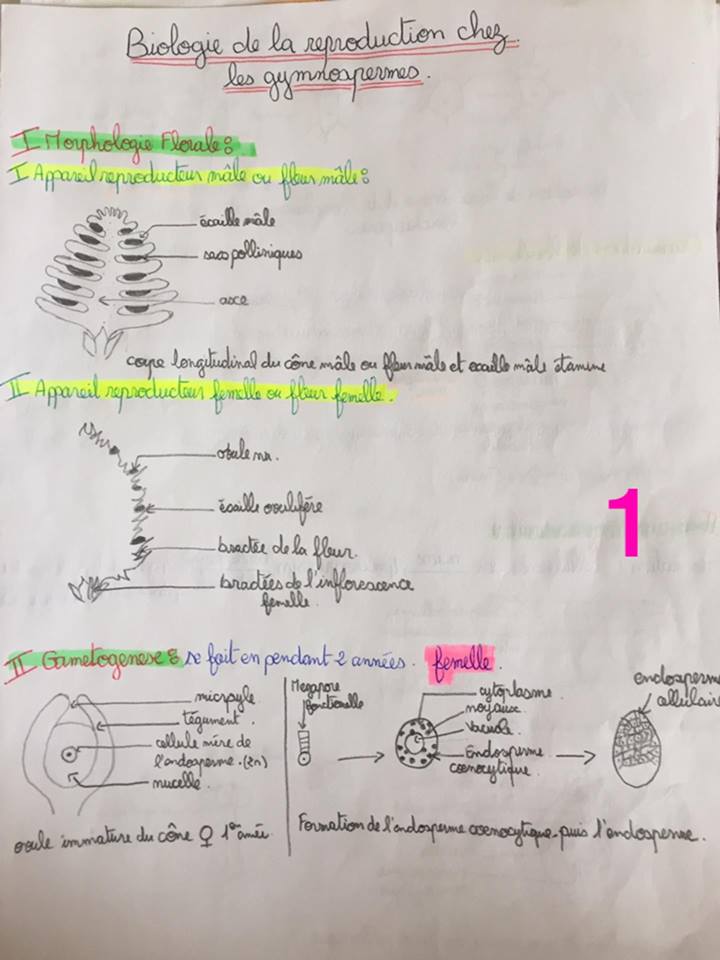 Biologie de la reproduction chez
les gymnospermes.
I Morphologie Florale :
I Appareil reproducteur mâle ou fleur mâle :
écaille mâle
sacs polliniques
axe
coupe longitudinal du cône mâle ou fleur mâle et écaille mâle étamine
II Appareil reproducteur femelle ou fleur femelle.
écaille ovulifère
bractée de la fleur.
bractées de l'inflorescence
femelle.
1
II Gametogenese : se fait en pendant 2 années. femelle.
micropyle
tégument.
cellule mère de
l'endosperme. (2n)
nucelle.
ovule immature du cône ♀ 1ère année.
fonctionelle
cytoplasme.
noyaux.
vacuole.
Endosperme
coenocytique.
endosperme
cellulaire
Formation de l'endosperme coenocytique puis l'endosperme.